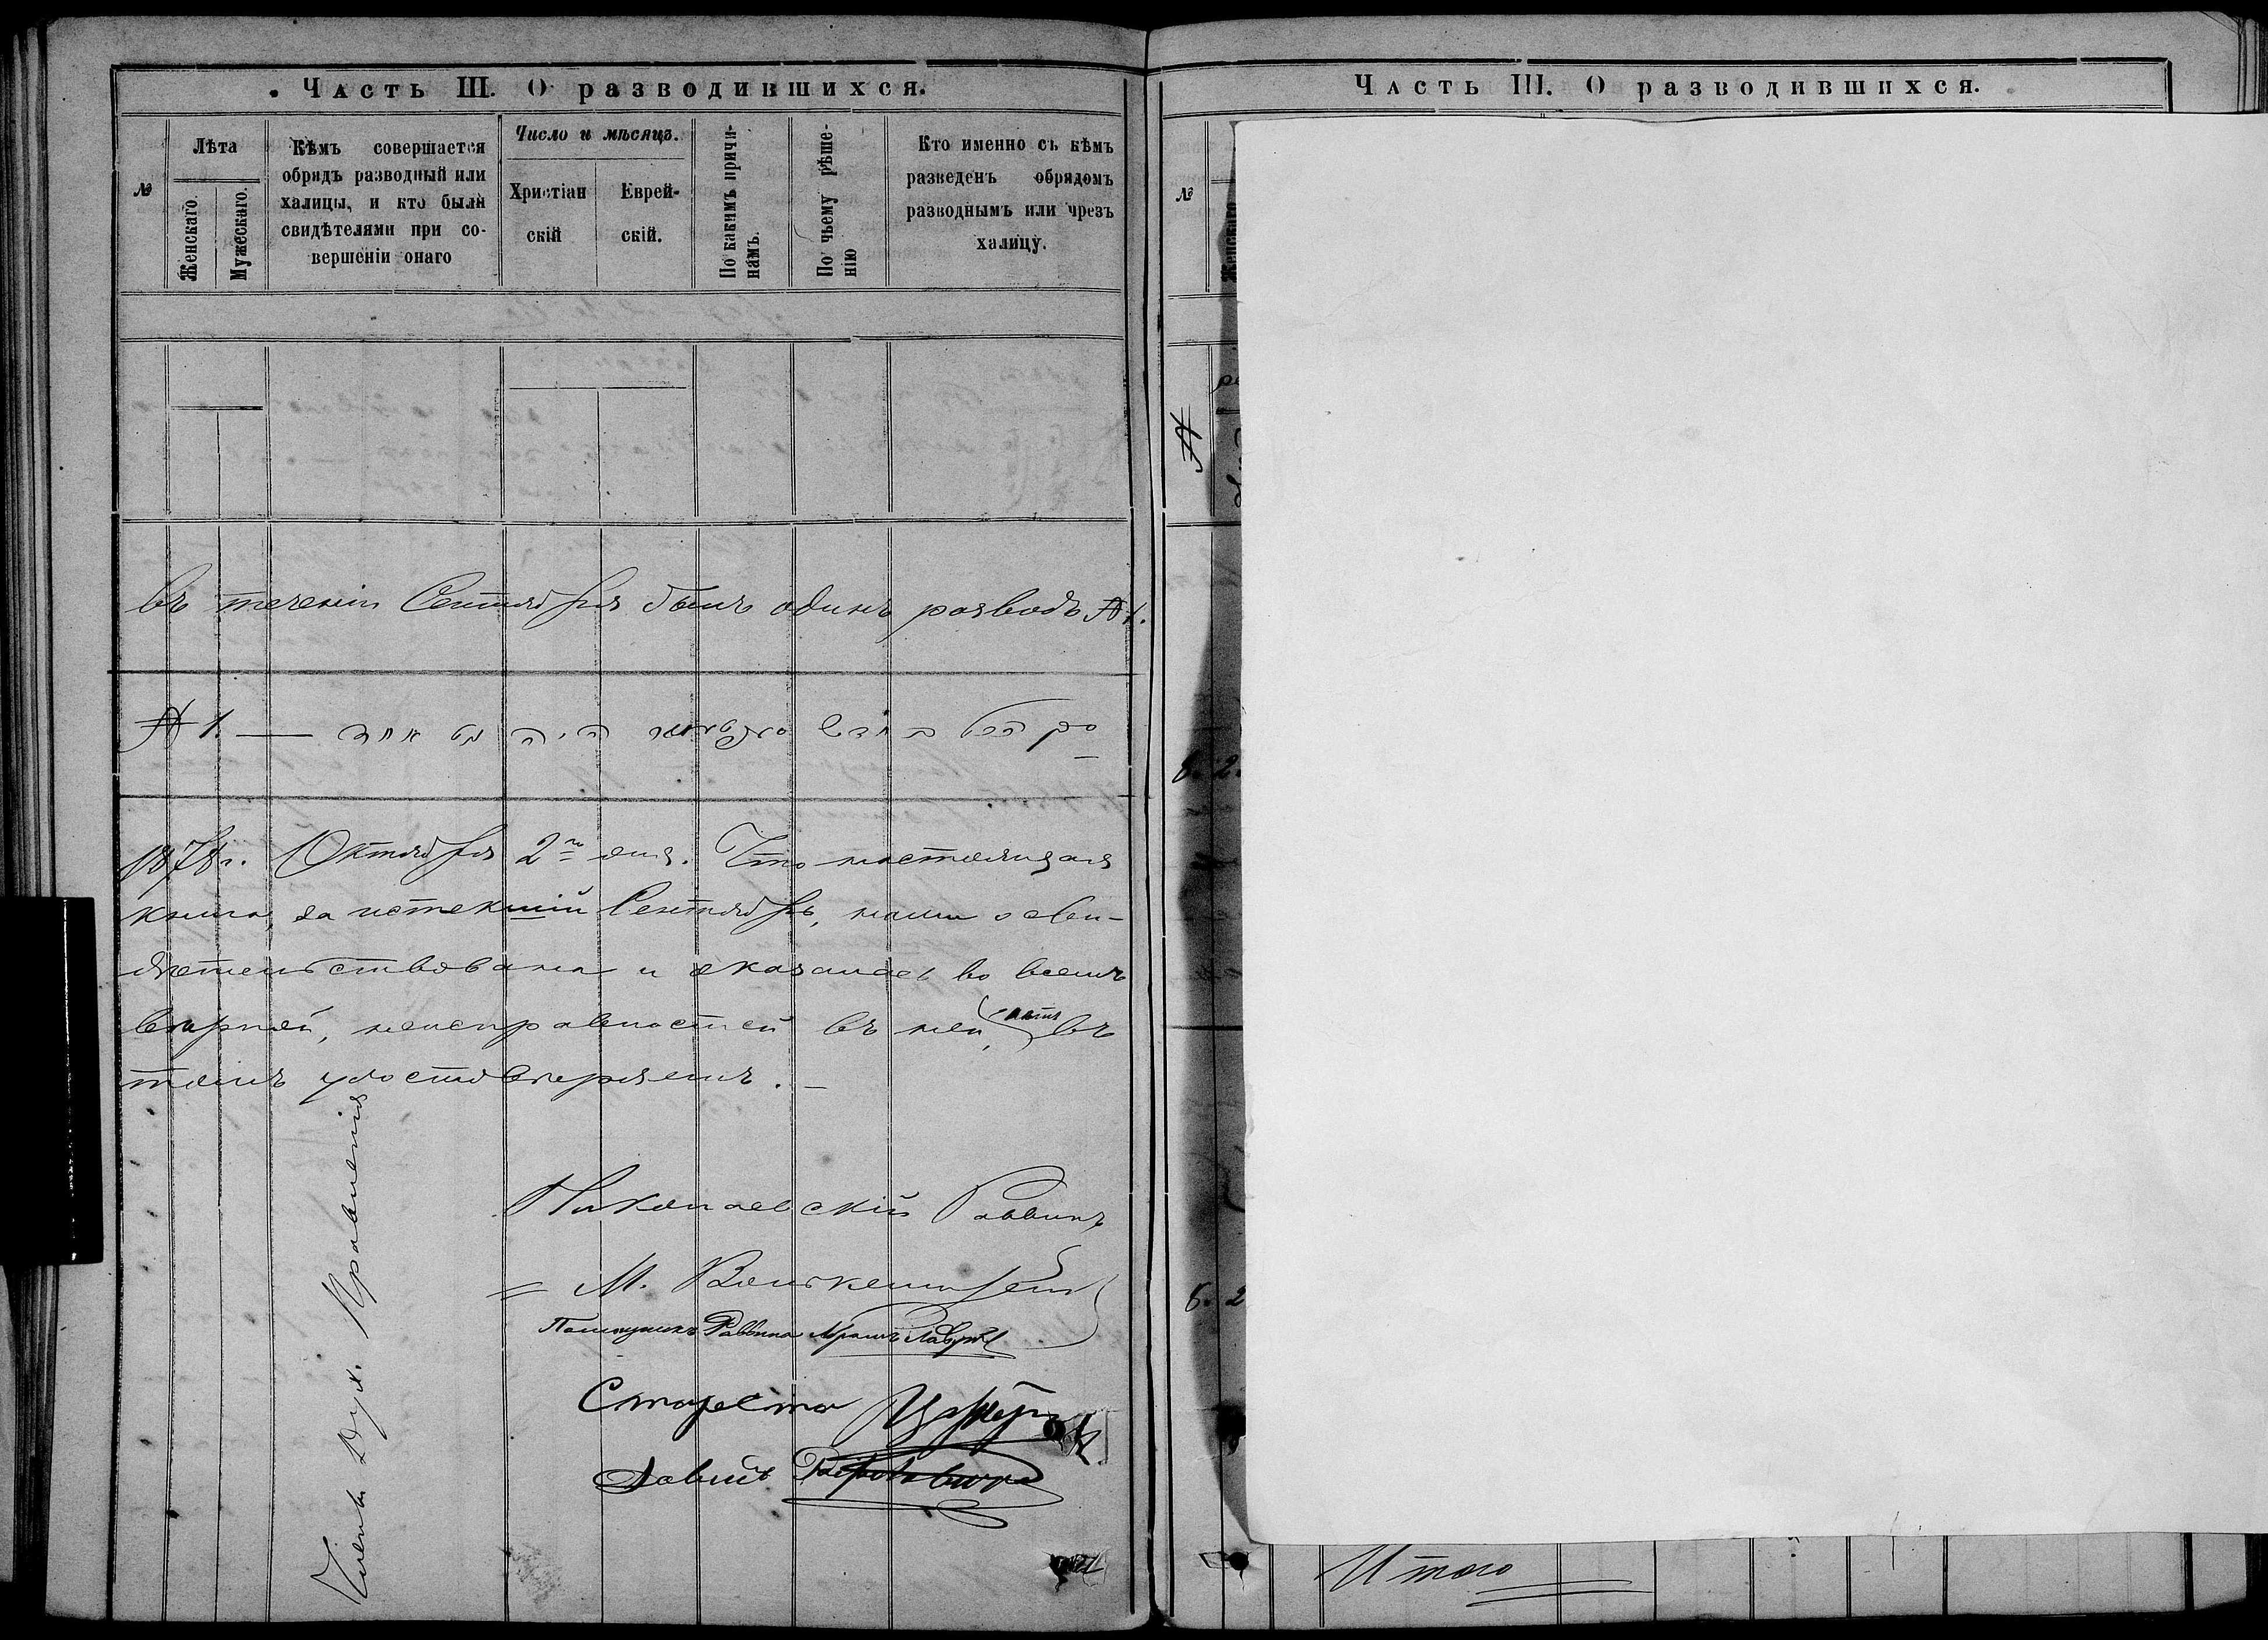 Часть III. О разводившихся.
№
Лѣта
Женскаго.
Мужескаго.
Кѣмъ совершается
обрядъ разводный или
халицы, и кто были
свидѣтелями при со-
вершеніи онаго
Число и мѣсяцъ.
Христіан
скій
Еврей-
скій.
По какимъ причи-
намъ.
По чьему рѣше-
нію
Кто именно съ кѣмъ
разведенъ обрядомъ
разводнымъ или чрезъ
халицу.
въ теченіи Сентября былъ одинъ разводъ № 1.
№ 1. —
1878 г. Октября 2го дня. Что настоящая
книга, за истекшій Сентябрь, нами осви-
дѣтельствована и оказалась во всемъ
вѣрной, неисправностей въ ней нѣтъ въ
томъ удостовѣряемъ. —
Николаевскій Раввинъ
М.
Помощникъ Раввина Абрамъ
Староста
Давидъ
Члены Дух. Правленія
Часть III. О разводившихся.
№
Женскаго
№
8. 2.
8. 2
Итого